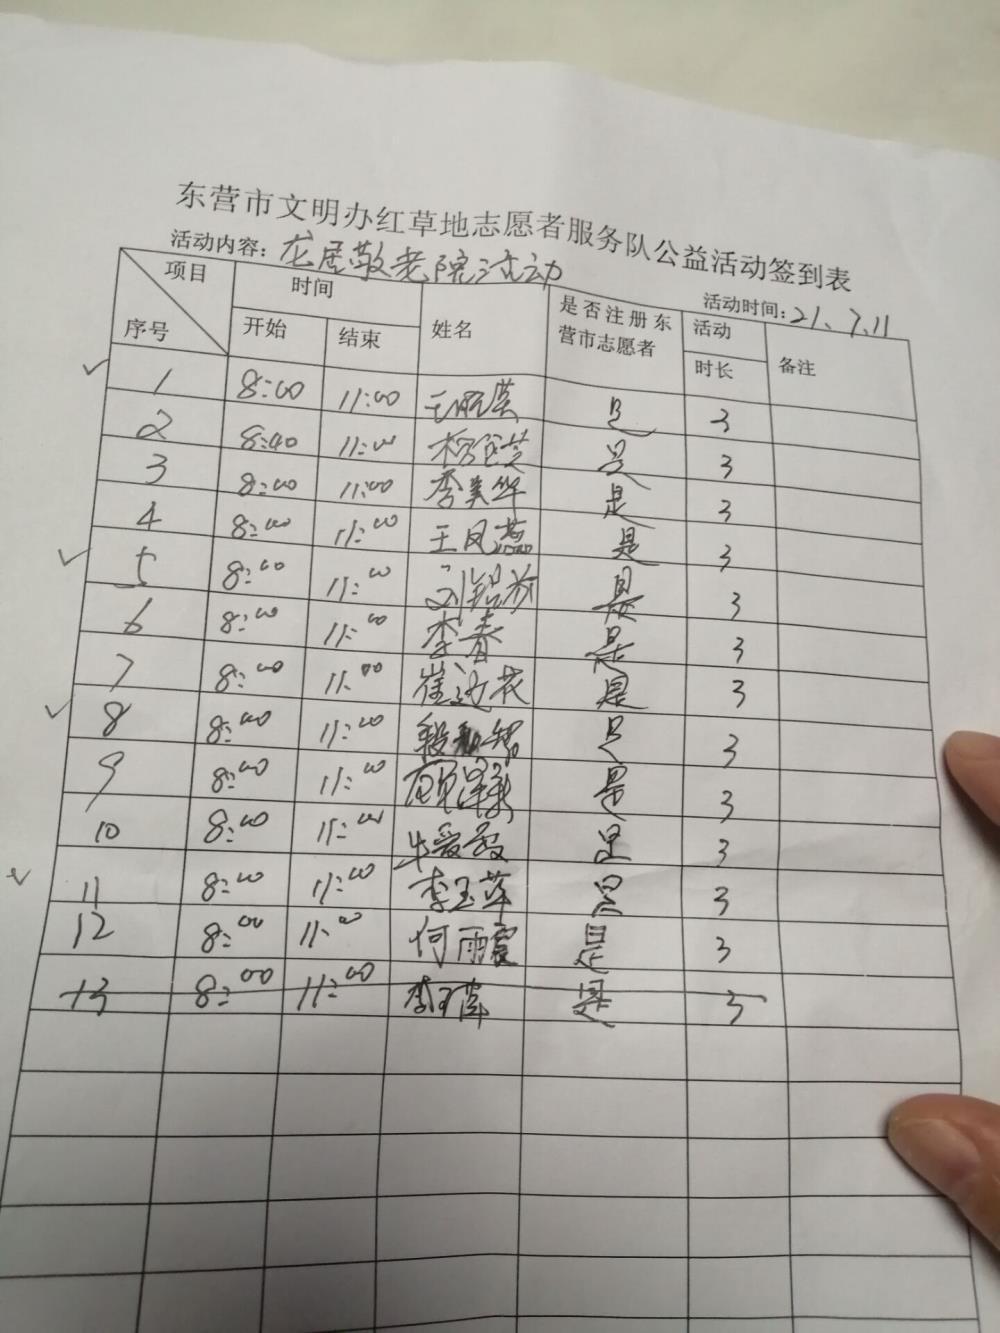 东营市文明办红草地志愿者服务队公益活动签到表
活动内容：龙居敬老院活动
活动时间：21、7.11
项目 时间 姓名 是否注册东营市志愿者 活动时长 备注
序号 开始 结束
1 8:00 11:00 是 3
2 8:00 11:00 3
3 8:00 11:00 李美华 是 3
4 8:00 11:00 王凤蕊 是 3
5 8:00 11:00 是 3
6 8:00 11:00 李春 是 3
7 8:00 11:00 崔迎花 是 3
8 8:00 11:00 是 3
9 8:00 11:00 是 3
10 8:00 11:00 牛爱教 是 3
11 8:00 11:00 李玉萍 是 3
12 8:00 11:00 何雨霞 是 3
13 8:00 11:00 是 3